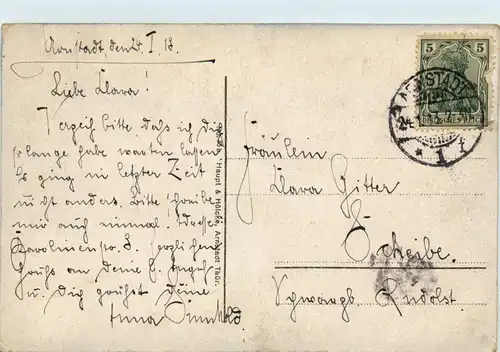 Arnstadt, den 24. I. 18.
Liebe Clara!
Verzeih bitte, daß ich dich
so lange habe warten lassen.
Es ging in letzter Zeit
nicht anders. Bitte schreibe
mir auch einmal. Adresse
Karolinenstr. 3. Herzlichen
Gruß an deine l. Angeh.
u. Dich grüßt deine
Anna
Haupt & Hölcke, Arnstadt Thür.
5 5
DEUTSCHES REICH
ARNSTADT
24.1.
* 1 f
Fräulein
Clara Gitter
Scheibe.
Schwarzb. Rudolst.